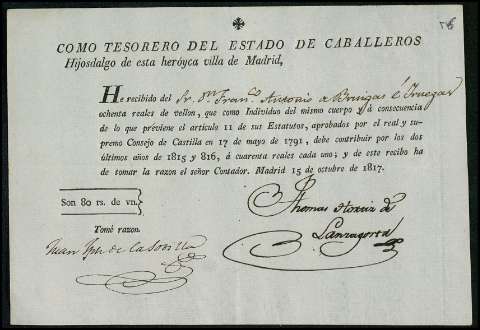 COMO TESORERO DEL ESTADO DE CABALLEROS
Hijosdalgo de esta heróyca villa de Madrid,
He recibido del Sr. Dn. Franco. Antonio de Bringas é
ochenta reales de vellon, que como Individuo del mismo cuerpo y á consecuencia
de lo que previene el artículo 11 de sus Estatutos, aprobados por el real y su-
premo Consejo de Castilla en 17 de mayo de 1791, debe contribuir por los dos
últimos años de 1815 y 816, á cuarenta reales cada uno; y de este recibo ha
de tomar la razon el señor Contador. Madrid 15 de octubre de 1817.
Son 80 rs. de vn.
Thomas de
Lanzagorta
Tomé razon.
Juan de